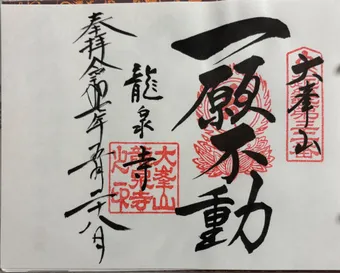 大峯山
一願不動
龍泉寺
大峯山
龍泉寺
之印
奉拝 令和七年五月二十八日